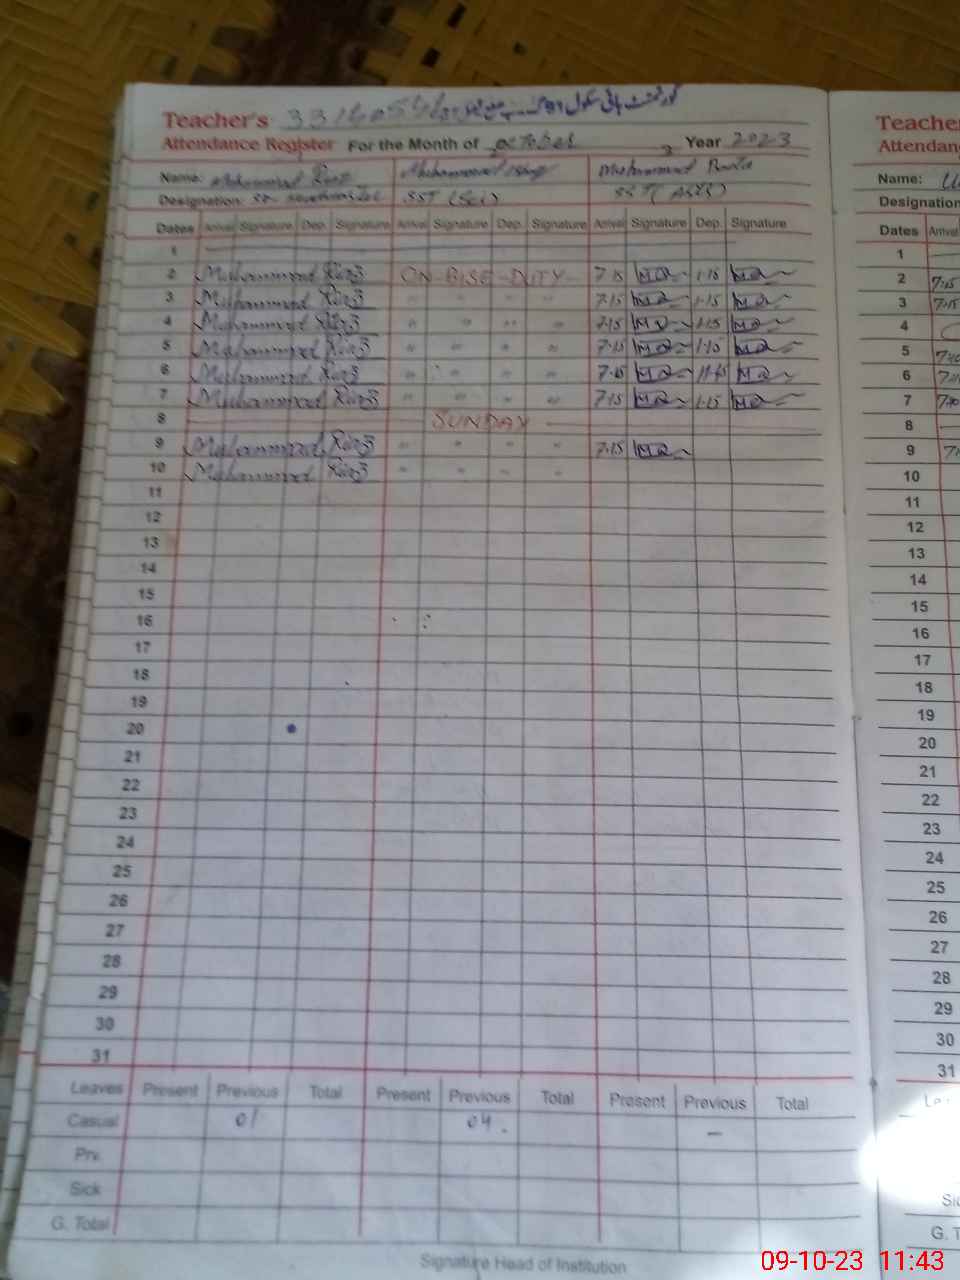 Teacher's 33140054
Attendance Register For the Month of october Year 2023
Name: Mohammad Riaz Muhammad Muhammad
Designation: SST (Sci) SST (Arts)
Dates Arrival Signature Dep. Signature Arrival Signature Dep. Signature Arrival Signature Dep. Signature
1
2 Muhammad Riaz ON-BISE-DUTY 7-15 MR 1-15 MR
3 Muhammad Riaz " " " " 7-15 MR 1-15 MR
4 Muhammad Riaz " " " " 7-15 MR 1-15 MR
5 Muhammad Riaz " " " " 7-15 MR 1-15 MR
6 Muhammad Riaz " " " " 7-15 MR 11-45 MR
7 Muhammad Riaz " " " " 7-15 MR 1-15 MR
8 SUNDAY
9 Muhammad Riaz " " " " 7-15 MR
10 Muhammad Riaz " " " "
11
12
13
14
15
16
17
18
19
20
21
22
23
24
25
26
27
28
29
30
31
Leaves Present Previous Total Present Previous Total Present Previous Total
Casual 01 04. –
Prv.
Sick
G. Total
Signature Head of Institution
Teache
Attendan
Name:
Designation
Dates Arrival
1
2 7-15
3 7-15
4
5
6
7
8
9
10
11
12
13
14
15
16
17
18
19
20
21
22
23
24
25
26
27
28
29
30
31
G. T
09-10-23 11:43